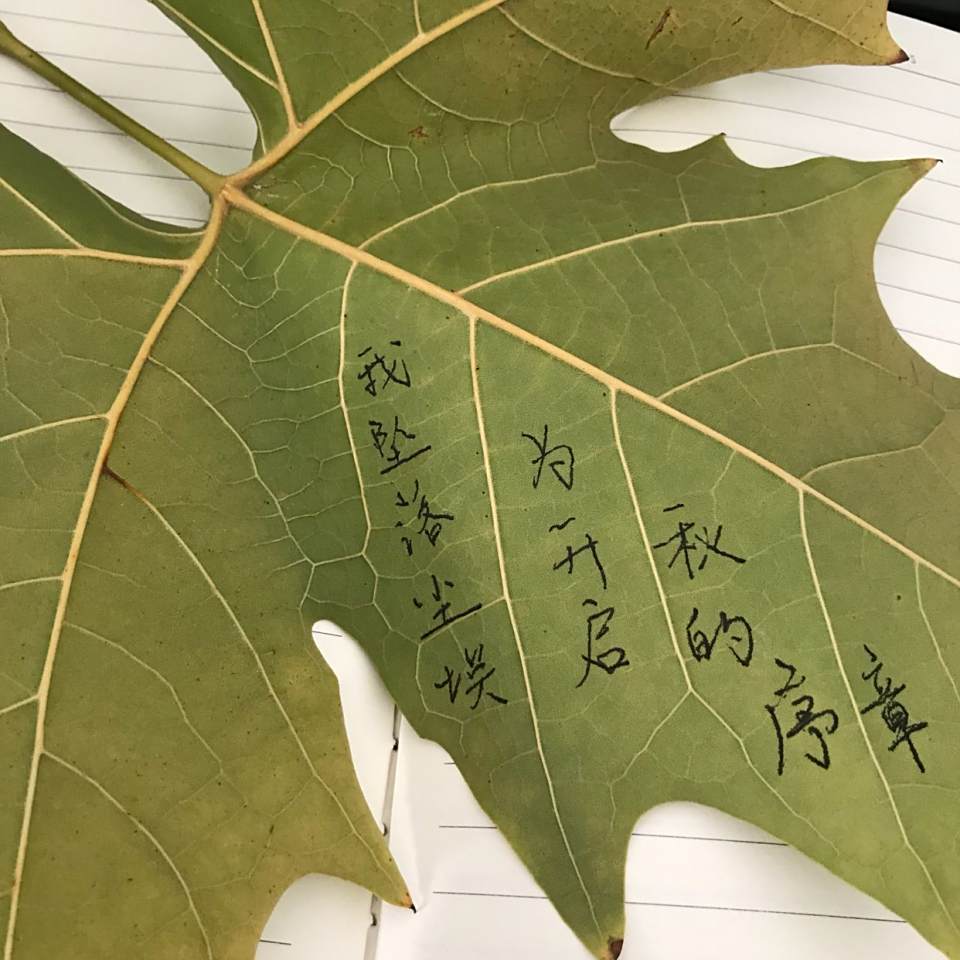 我坠落尘埃
为开启
秋的
序章